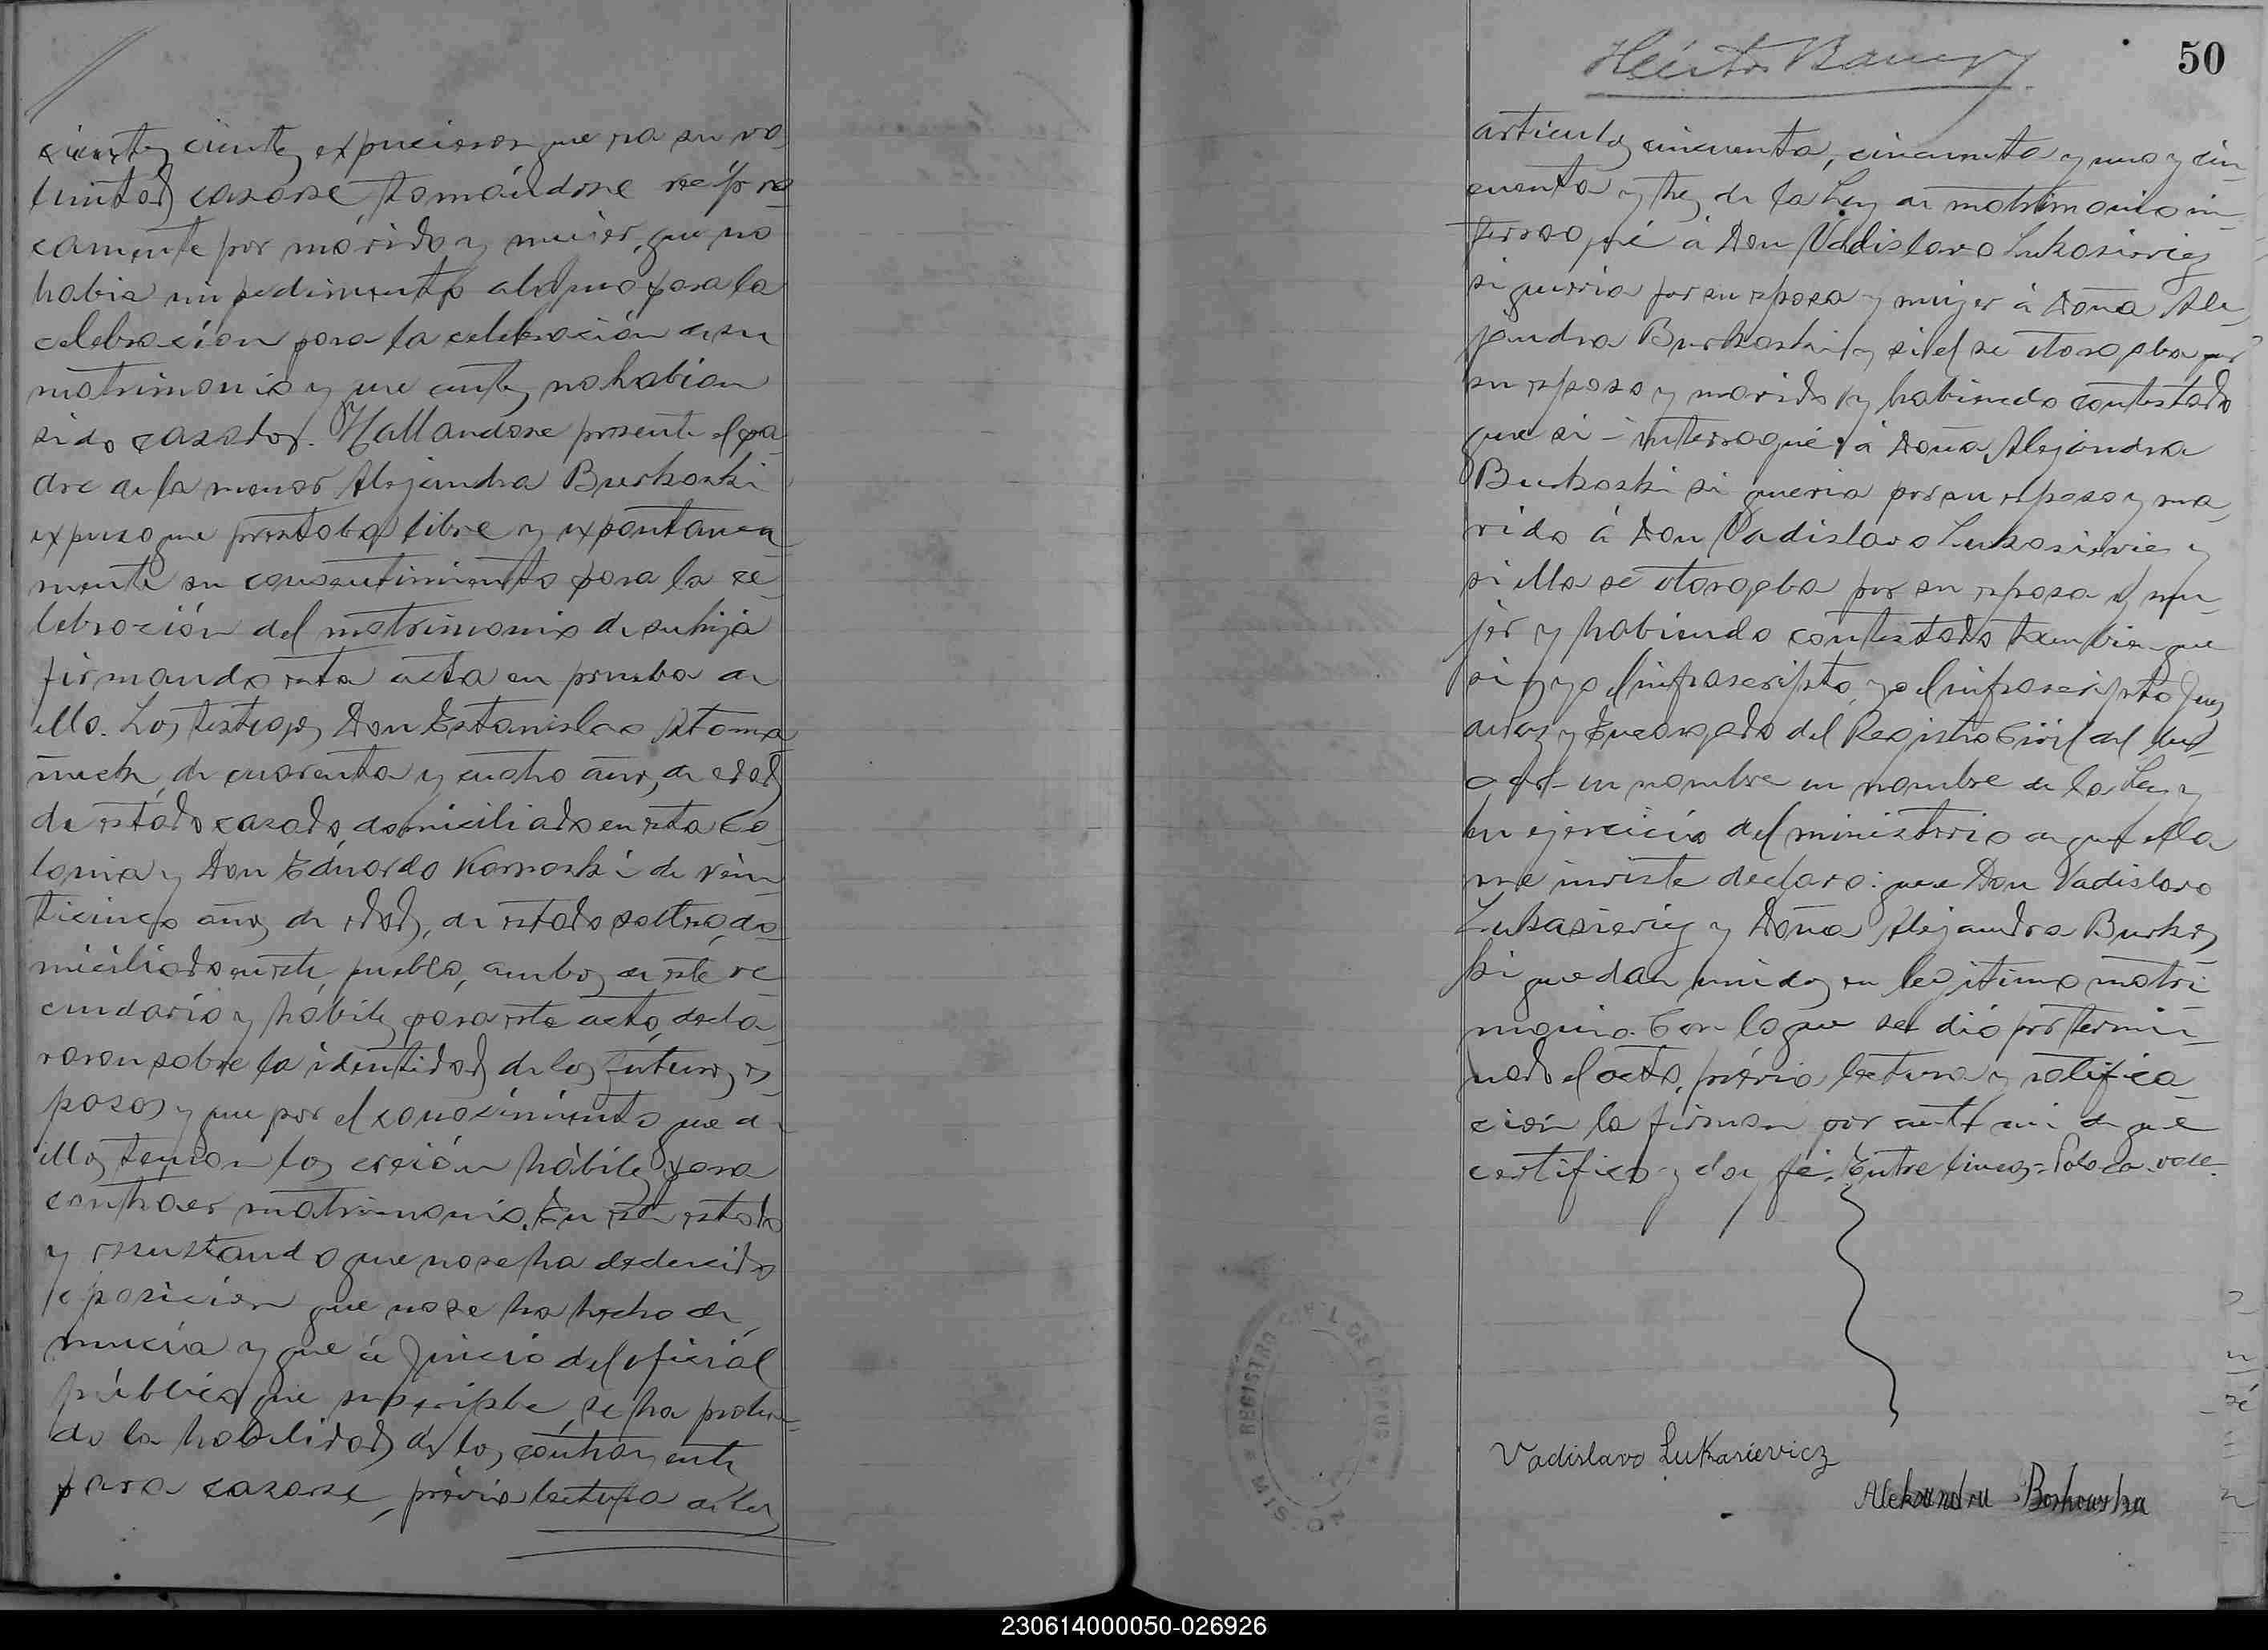 cientes expusieron que era su vo-
luntad casarse, tomándose recipro
camente por marido y mujer, que no
habia impedimento alguno para la
celebracion para la celebración de su
matrimonio y que antes no habian
sido casados. Hallandose presente el pa-
dre de la menor Alejandra Burkoski
expuso que prestaba libre y expontanea
mente su consentimiento para la ce-
lebración del matrimonio de su hija
firmando esta acta en prueba de
ello. Los testigos Don Estanislao
de cuarenta y cuatro años, de edad
de estado casado, domiciliado en esta Co-
lonia y Don Eduardo de vein
ticinco años de edad, de estado soltero, do-
miciliado en este pueblo, ambos de este ve
cindario y hábiles para este acto, decla-
raron sobre la identidad de los futuros es-
posos y que por el conocimiento que de
ellos tenian los creián hábiles para
contraer matrimonio. En este estado
y resultando que no se ha deducido
oposición que no se ha hecho de-
nuncia y que á juicio del oficial
público que suscribe, se ha proba-
do la habilidad de los contrayentes
para casarse, prévia lectura de los
Héctor
50
articulos cincuenta, cincuenta y uno y cin-
cuenta y tres de la Ley de matrimonio in-
terrogué á Don Vadislavo Lukasievicz
si queria por su esposa y mujer á Doña Ale-
jandra Burkoski y si el se otorgaba por
su esposo y marido y habiendo contestado
que si - interrogué á Doña Alejandra
Burkoski si queria por su esposo y ma-
rido á Don Vadislavo Lukasievicz y
si ella se otorgaba por su esposa y mu-
jer y habiendo contestado tambien que
si y yo el infrascripto, yo el infrascripto Juez
de Paz y Encargado del Registro Civil del lu-
gar - en nombre en nombre de la Ley y
en ejercicio del ministerio de que ella
me inviste declaro: que Don Vadislavo
Lukasievicz y Doña Alejandra Burkos
ki quedan unidos en legitimo matri
monio. Con lo que se dió por termi-
nado el acto, prévia lectura y ratifica-
ción la firman por ante mi de que
certifico y doy fé. Entre lineas = vale.
REGISTRO CIVIL DE CORPUS
MISIONES
Vadislavo Lukasievicz
Aleksandra Borkowska
230614000050-026926